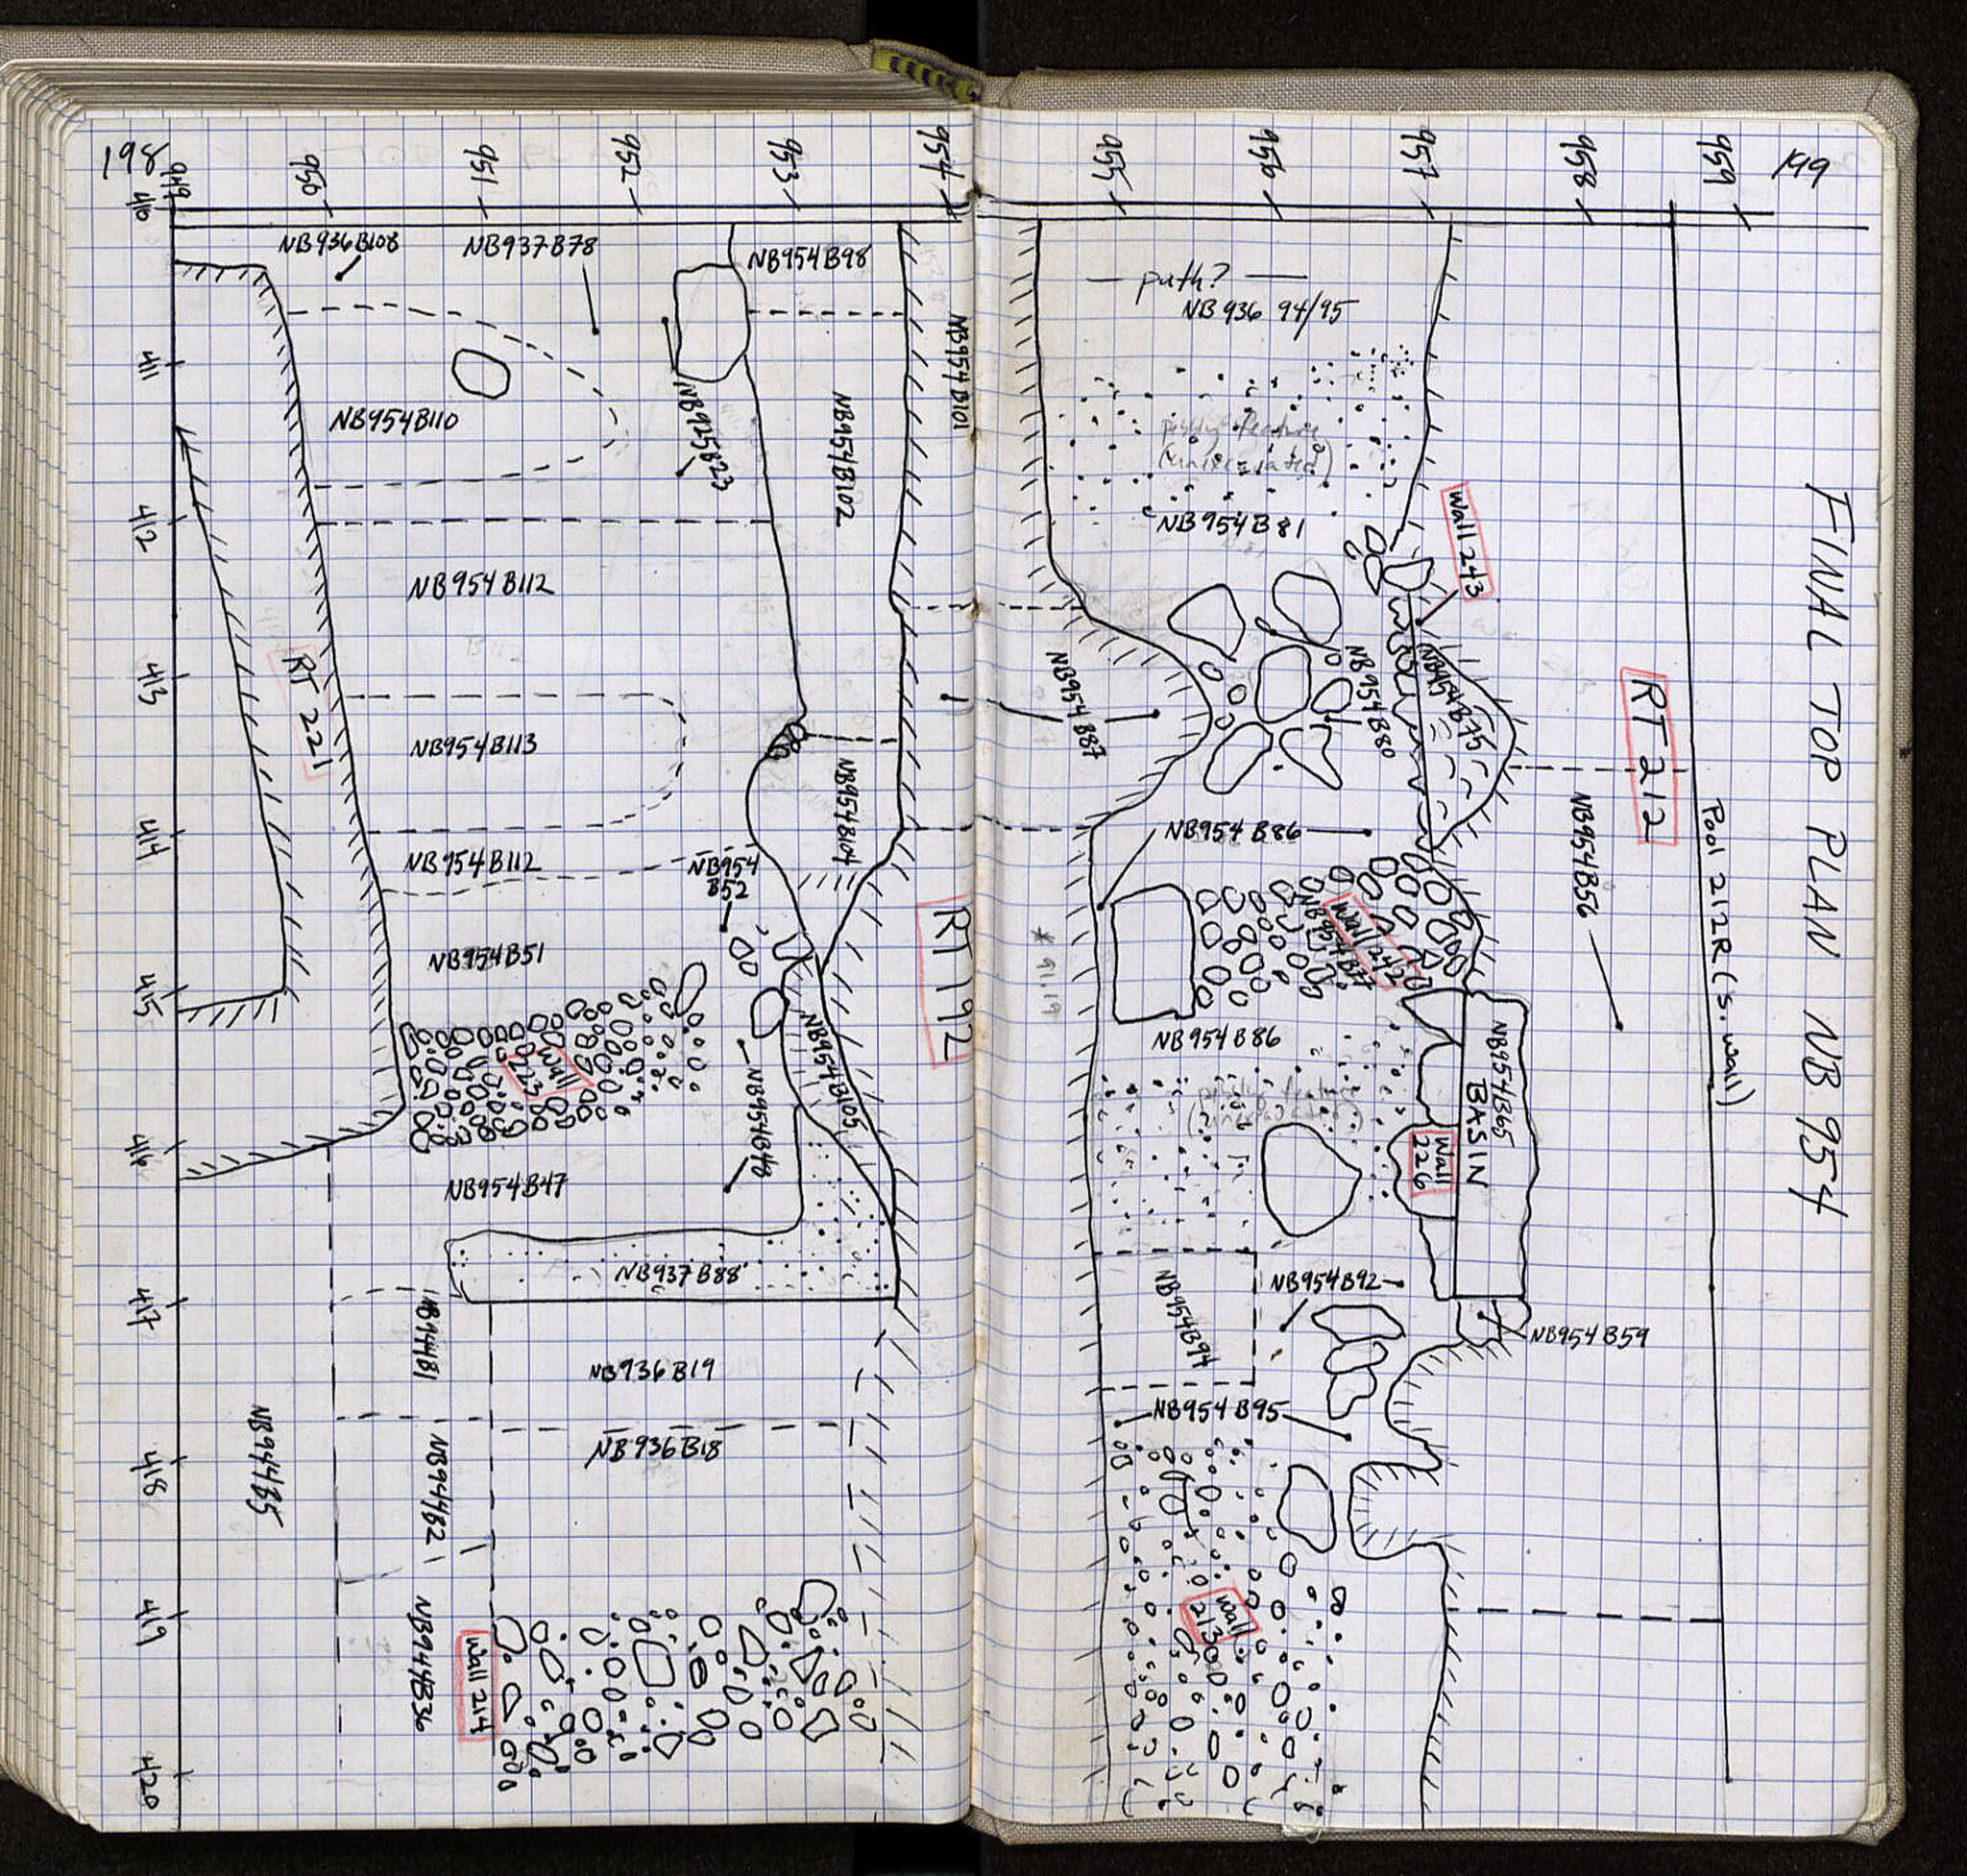 198
949
950
951
952
953
954
410
411
412
413
414
415
416
417
418
419
420
NB936B108
NB937B78
NB954B98
NB954B101
NB954B110
NB925B23
NB954B102
NB954B112
RT 221
NB954B113
NB954B104
NB954B112
NB954
B52
NB954B51
RT 192
wall
223
NB954B48
NB954B105
NB954B47
NB937B88
NB944B1
NB936B19
NB936B18
NB944B5
NB944B2
NB944B36
wall 214
199
955
956
957
958
959
FINAL TOP PLAN NB 954
— path? —
NB 936 94/95
pebbly feature
(unexcavated)
NB954B81
Wall 243
NB954B87
NB954B80
NB954B75
RT 212
Pool 212R (S. wall)
NB954B56
NB954B86
Wall 242
NB954B77
* 91.19
NB954B86
pebbly feature
(unexcavated)
NB954B65
BASIN
Wall
226
NB954B94
NB954B92
NB954B59
NB954B95
wall
213